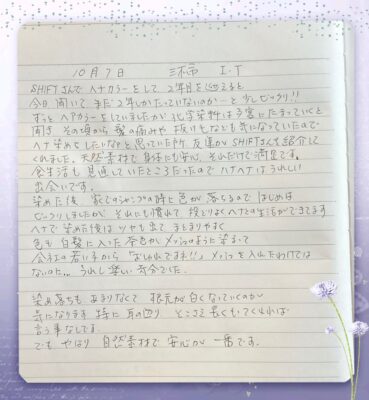 10月7日 I.T
SHIFTさんで ヘナカラーをして 2年目を迎えると
今日 聞いて まだ2年しかたっていないのか…と少しビックリ!!
ずっと ヘアカラーをしていましたが 化学染料は子宮にたまっていくと
聞き、その頃から 髪の痛みや 抜け毛なども気になっていたので
ヘナ染めをしたいなと思っていた所 友達がSHIFTさんを紹介して
くれました。天然素材で 身体にも安心、それだけで満足です。
食生活も 見直していたところだったので ヘナカラーはうれしい
出会いです。
染めた後 家でのシャンプーの時と色が落ちるので はじめは
ビックリしましたが それにも慣れて 程よくヘナとの生活ができてます
ヘナで染めた後は ツヤも出て まとまりやすく
色も 白髪に入った茶色が メッシュのように染まって
会社の若い子から「おしゃれですネ!!」メッシュを入れたわけでは
ないのに… うれし 楽しい 気分でした。
染め落ちも あまりなくて 根元が白くなっていくのが
気になります 特に 耳の辺り そこさえ 長くもってくれれば
言う事なしです。
でも やはり 自然素材で 安心が 一番です。